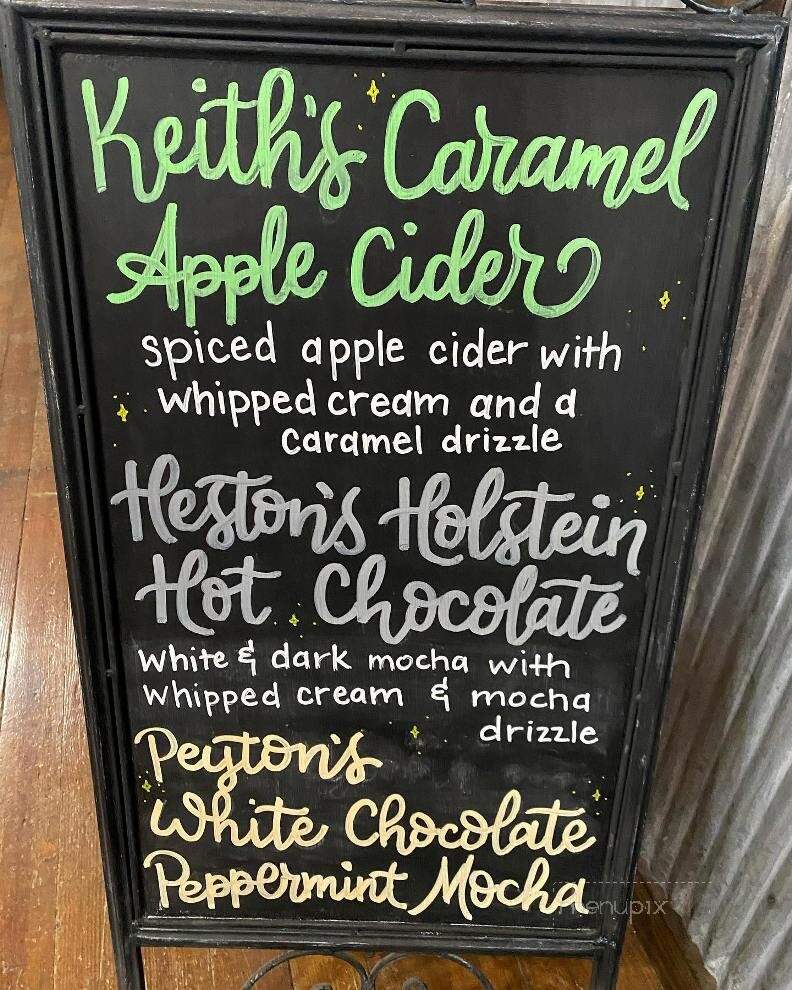 Keith's Caramel
Apple Cider
spiced apple cider with
whipped cream and a
caramel drizzle
Heston's Holstein
Hot Chocolate
white & dark mocha with
whipped cream & mocha
drizzle
Peyton's
White Chocolate
Peppermint Mocha
menupix